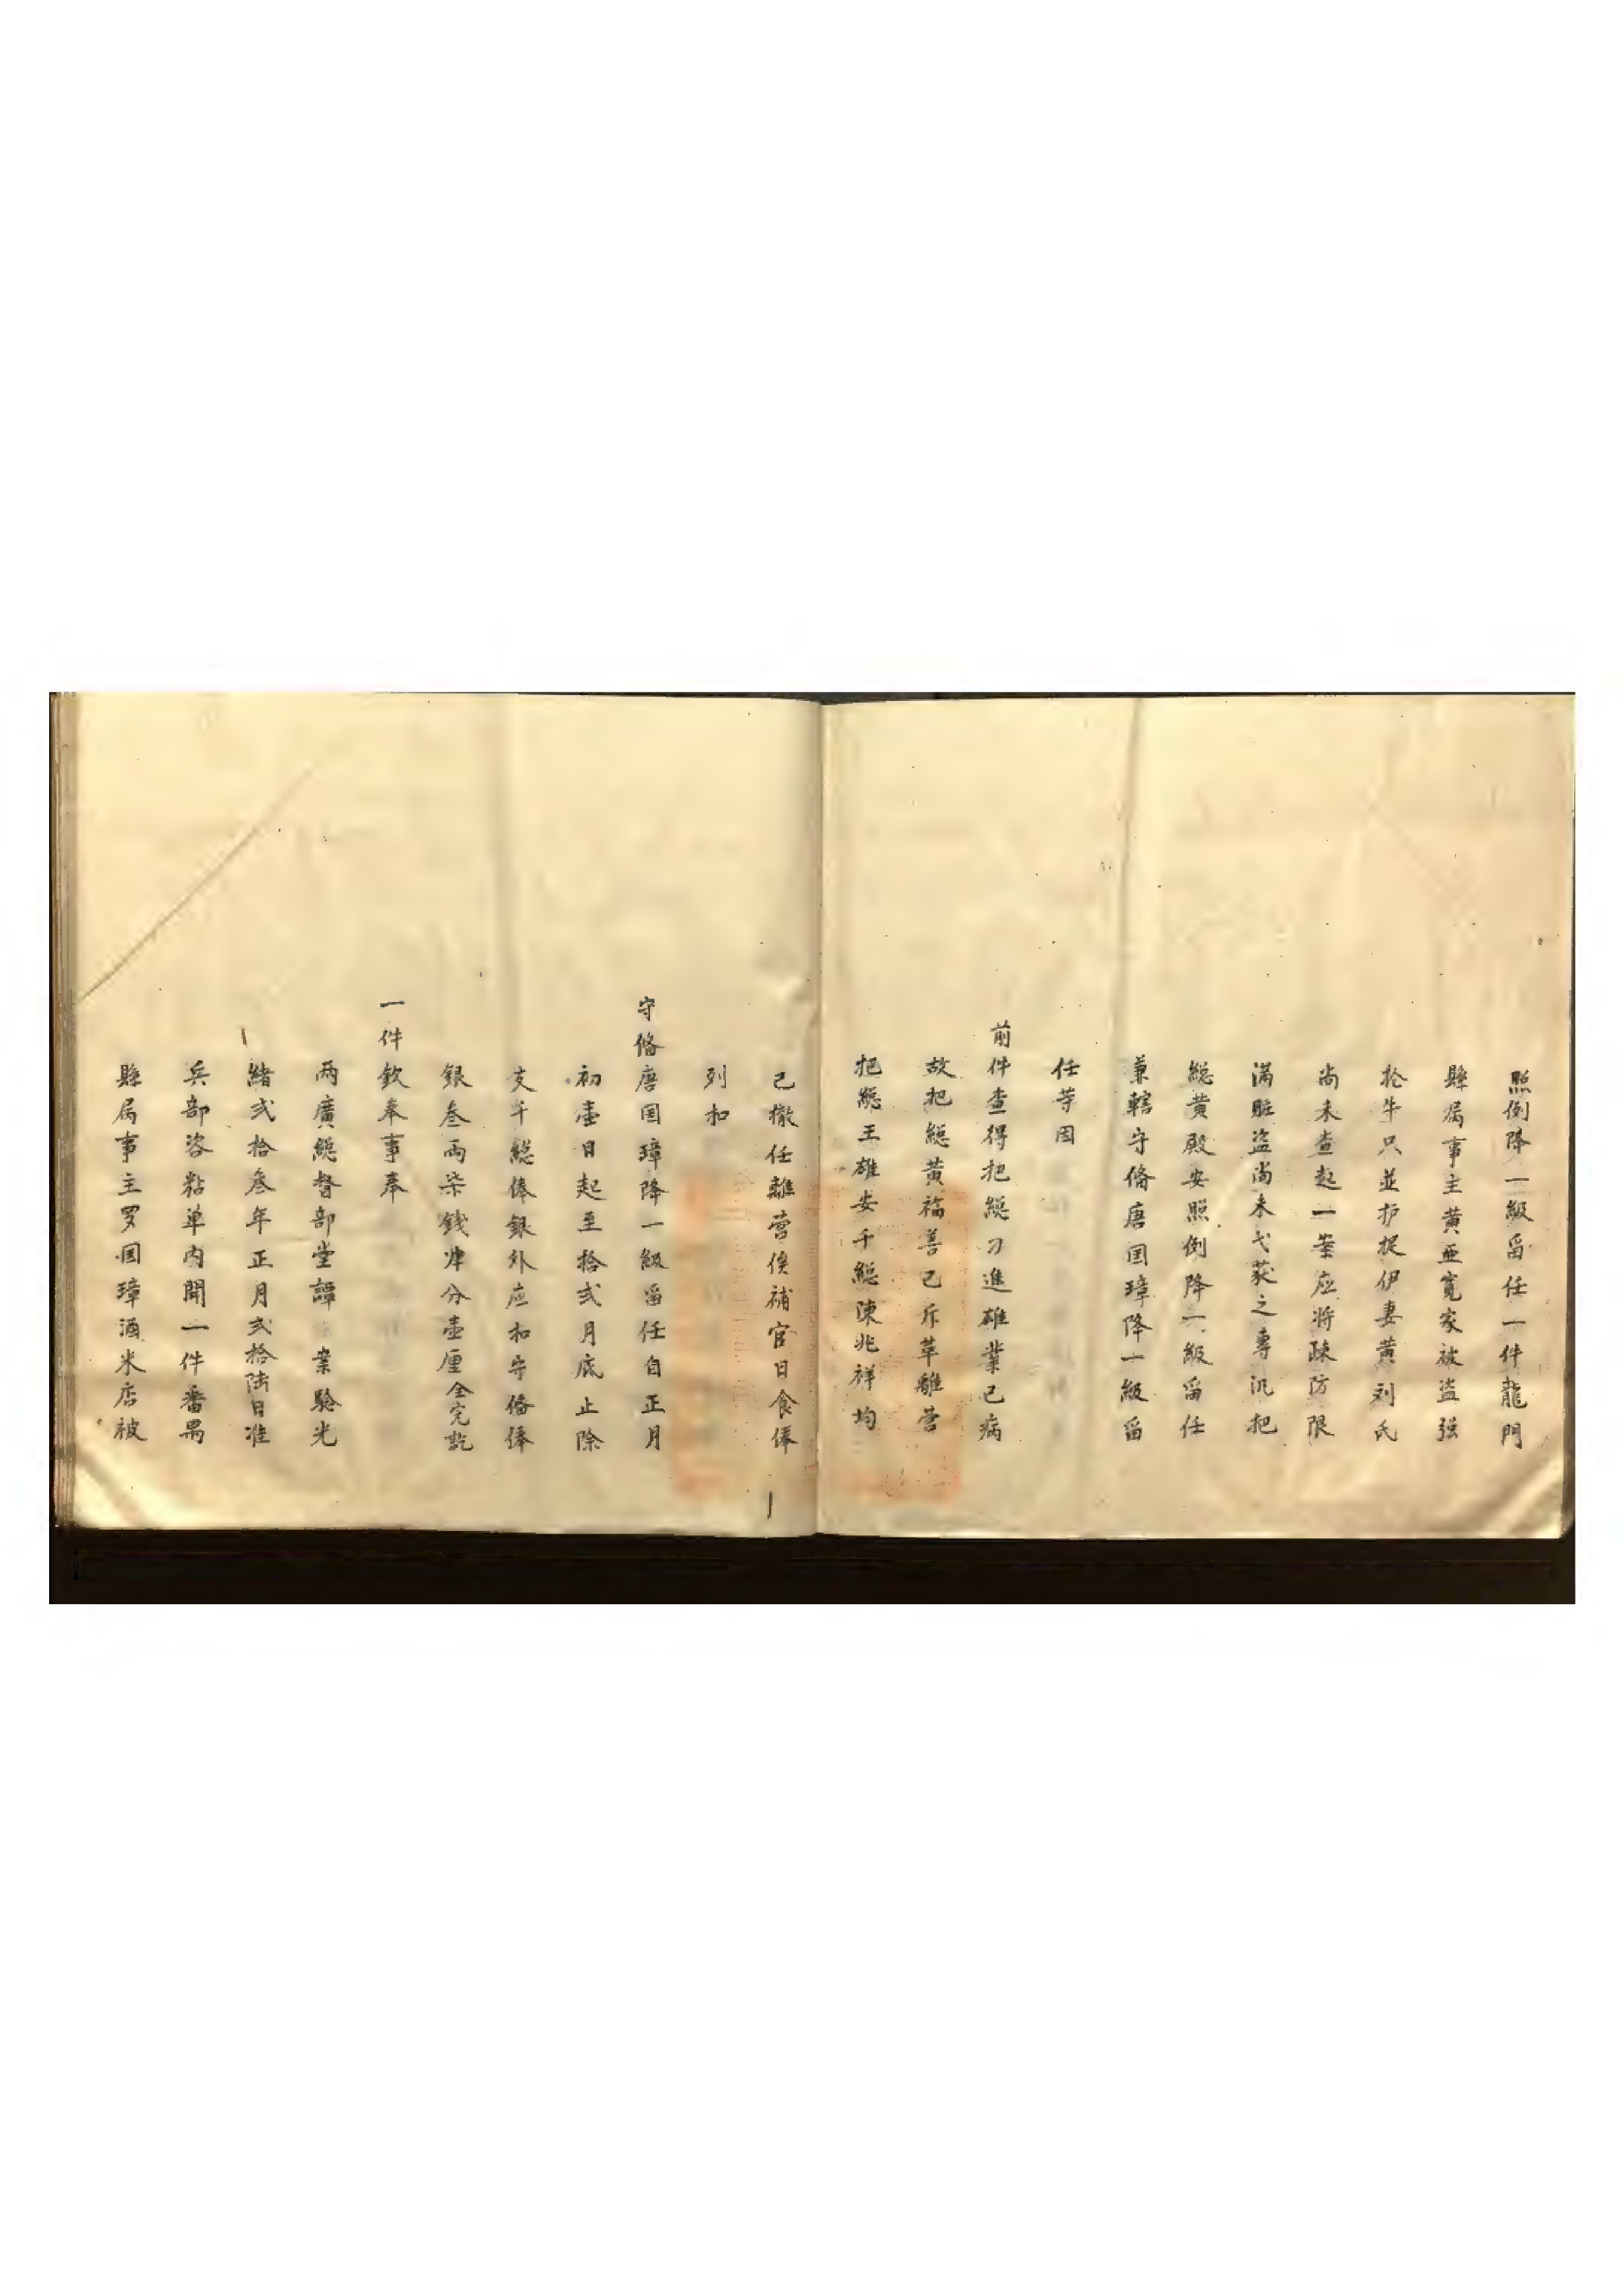 照例降一級畄任一件龍門
縣属事主黄亜寛家被盗强
抢牛只並扩捉伊妻黄刘氏
尚未查起一案应将疎防限
满賍盗尚未弋获之專汛把
緫黄殿安照例降一級畄任
兼轄守俻唐囯璋降一級畄
任等因
前件查得把緫刀進雄業已病
故把緫黄福善已斥革離营
把緫王雄安千緫陳兆祥均
已撤任離营俟補官日食俸
列扣
守俻唐囯璋降一級畄任自正月
初壹日起至拾弍月底止除
支千緫俸銀外应扣守俻俸
銀叁両柒錢肆分壹厘全完訖
一件欽奉事奉
両廣緫督部堂譚 案驗光
緒弍拾叁年正月弍拾陆日准
兵部咨粘单内開一件番禺
縣属事主罗囯璋酒米店被